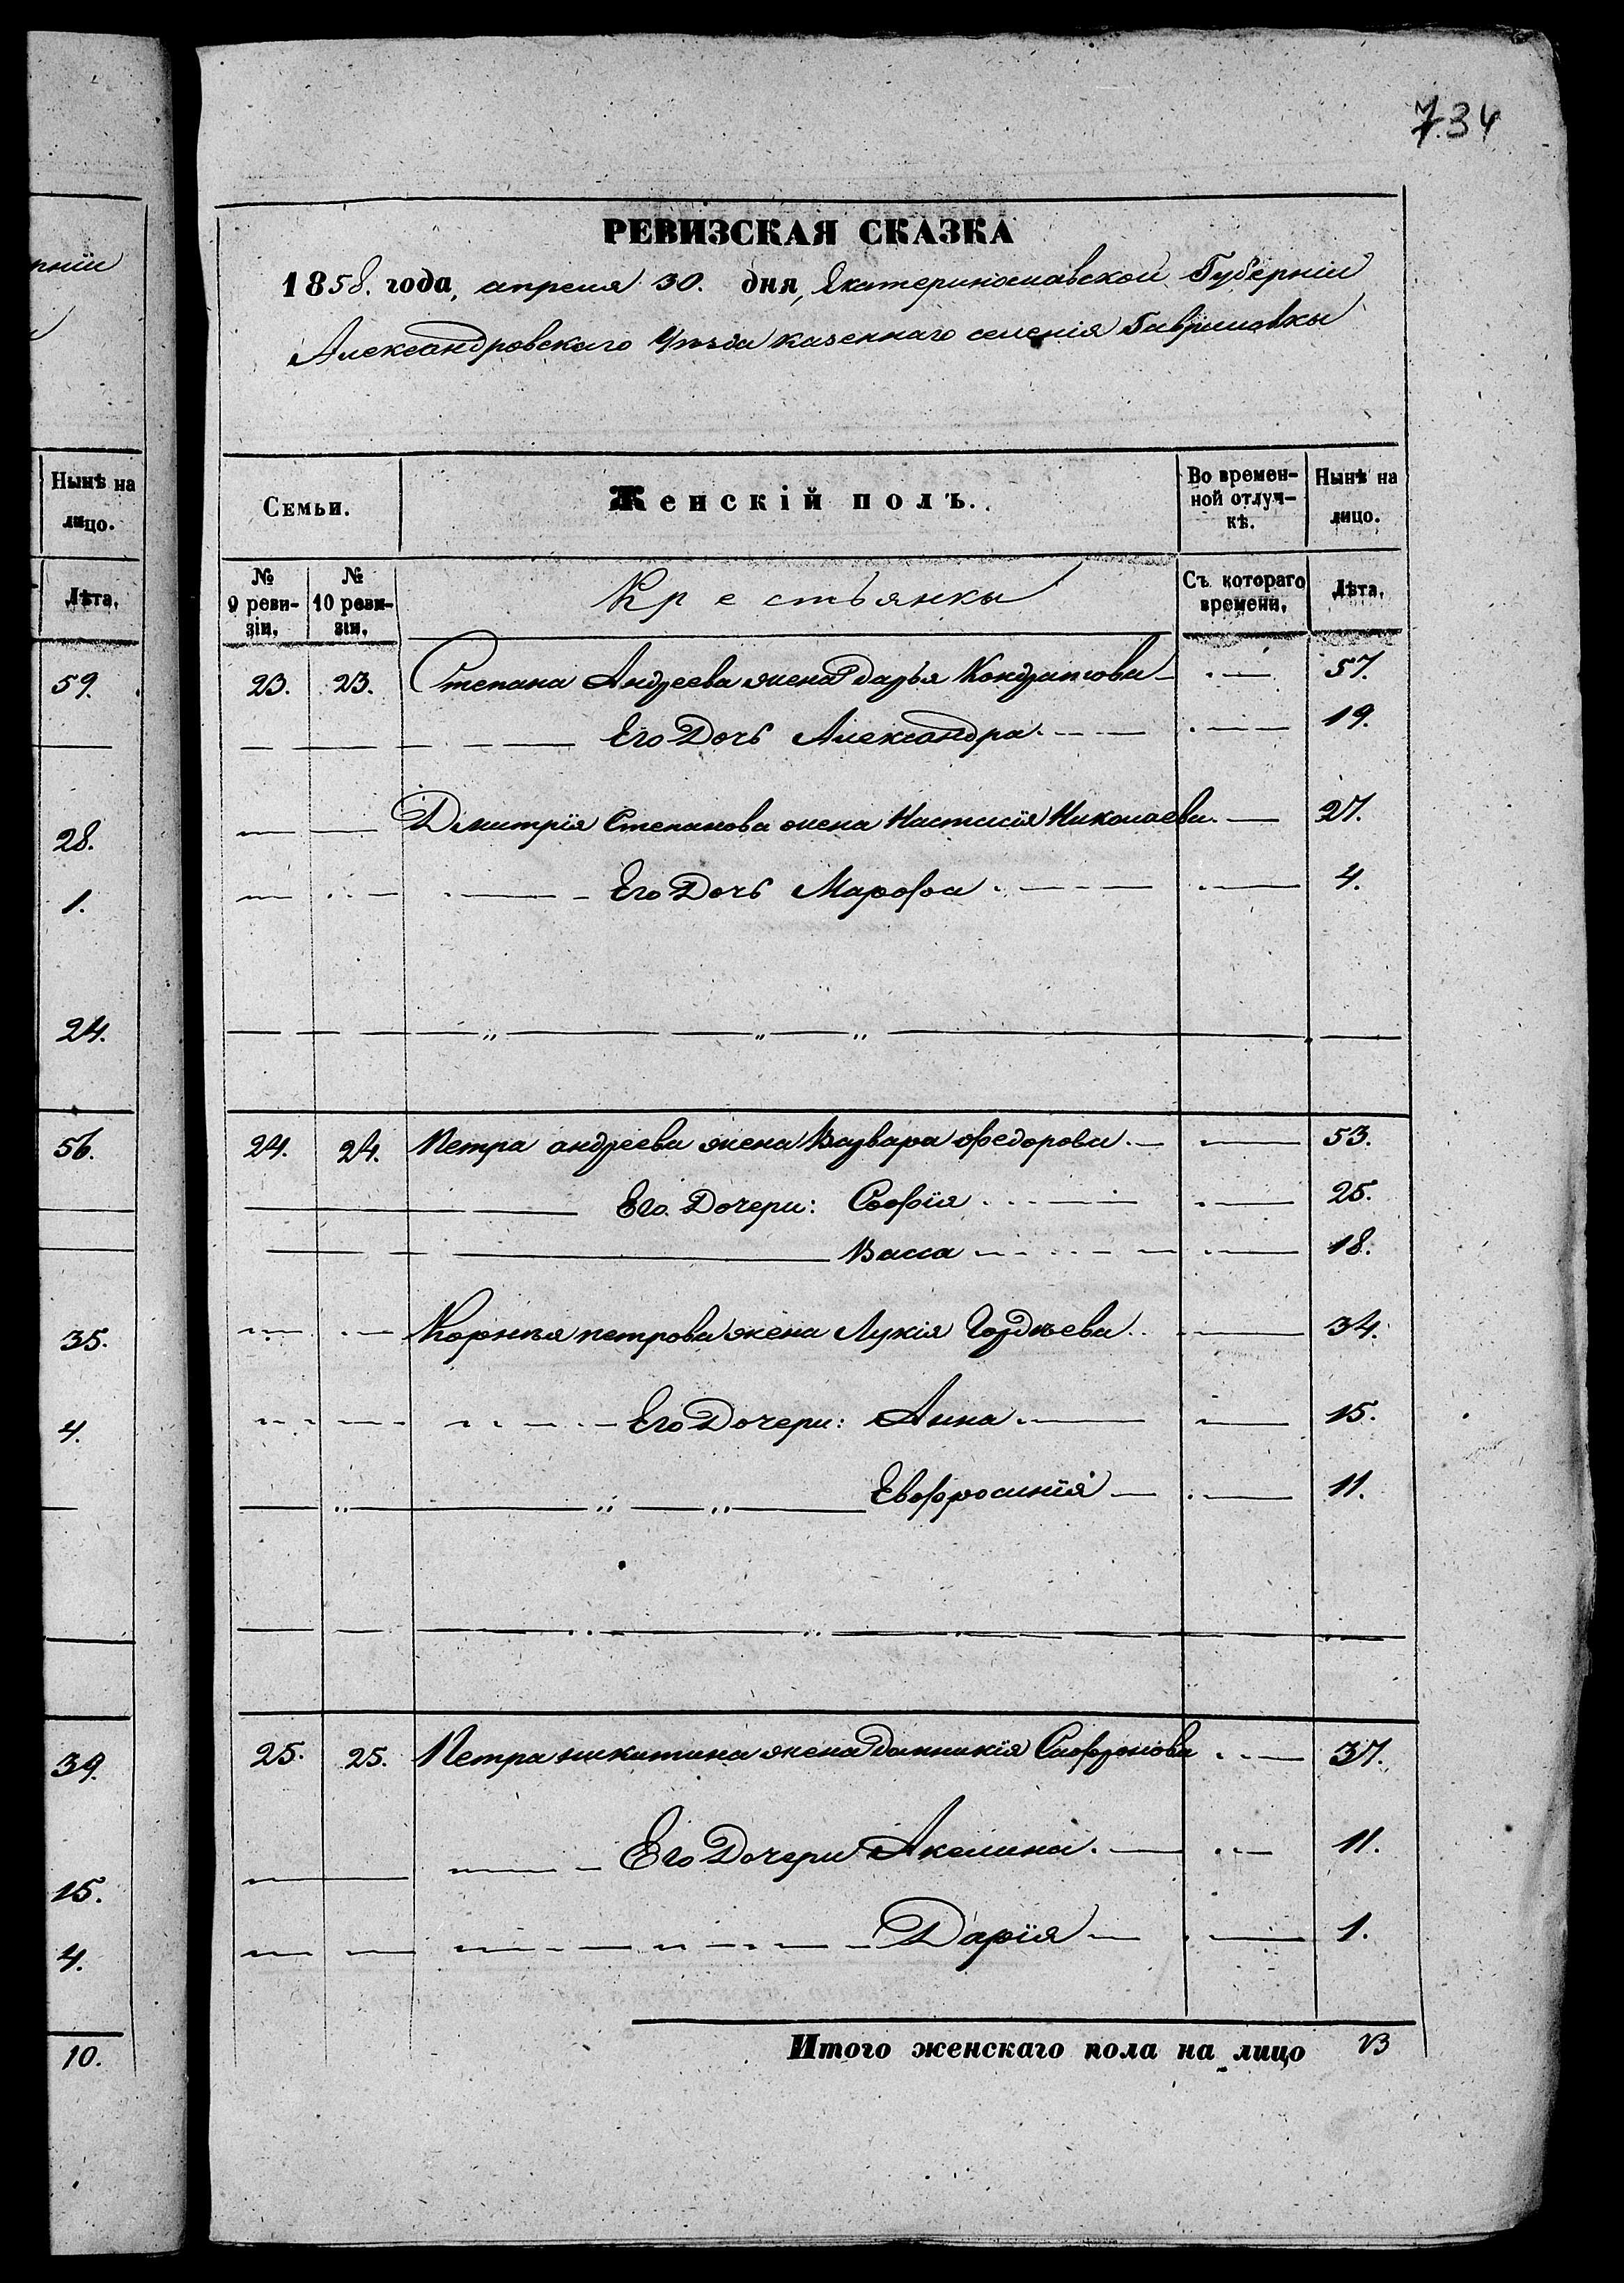 рніи
Нынѣ на
лицо.
Лѣта.
59.
28.
1.
24.
56.
35.
4.
39.
15.
4.
10.
734
РЕВИЗСКАЯ СКАЗКА
1858. года, апреля 30. дня, Екатеринославской Губерніи
Александровскаго Уѣзда казеннаго селенія Гавриловки
Семьи.
Женскій полъ.
Во времен-
ной отлуч-
кѣ.
Нынѣ на
лицо.
№
9 реви-
зіи.
№
10 реви-
зіи.
Крестьянки
Съ котораго
времени.
Лѣта.
23. 23. Степана Андреева жена Дарья Кондратова 57.
Его Дочь Александра 19.
Дмитрія Степанова жена Настасія Николаева 27.
Его Дочь Марфа 4.
24. 24. Петра андреева жена Варвара Федорова 53.
Его Дочери: Софія 25.
Васса 18.
Корнѣя петрова жена Лукія Гордѣева 34.
Его Дочери: Анна 15.
Евфросинія 11.
25. 25. Петра никитина жена Домникія Сафронова 37.
Его Дочери Акелина 11.
Дарія 1.
Итого женскаго пола на лицо 13